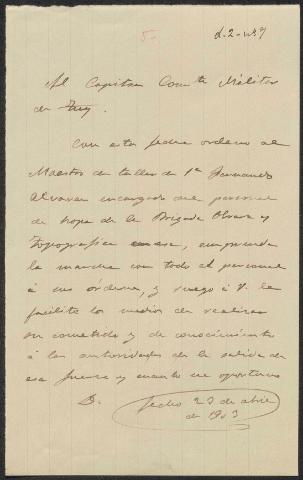 5.
Al Capitan Comte Militar
de Tuy.
Con esta fecha ordeno al
Maestro de taller de 1ª Fernando
Alvarez encargado del personal
de tropa de la Brigada Obrera y
Topografica emprenda
la marcha con todo el personal
á sus ordenes, y ruego á V. le
facilite los medios de realizar
su cometido y de conocimiento
á las autoridades de la salida de
esa fuerza y cuanto sea oportuno
D.
fecho 23 de abril
de 1903